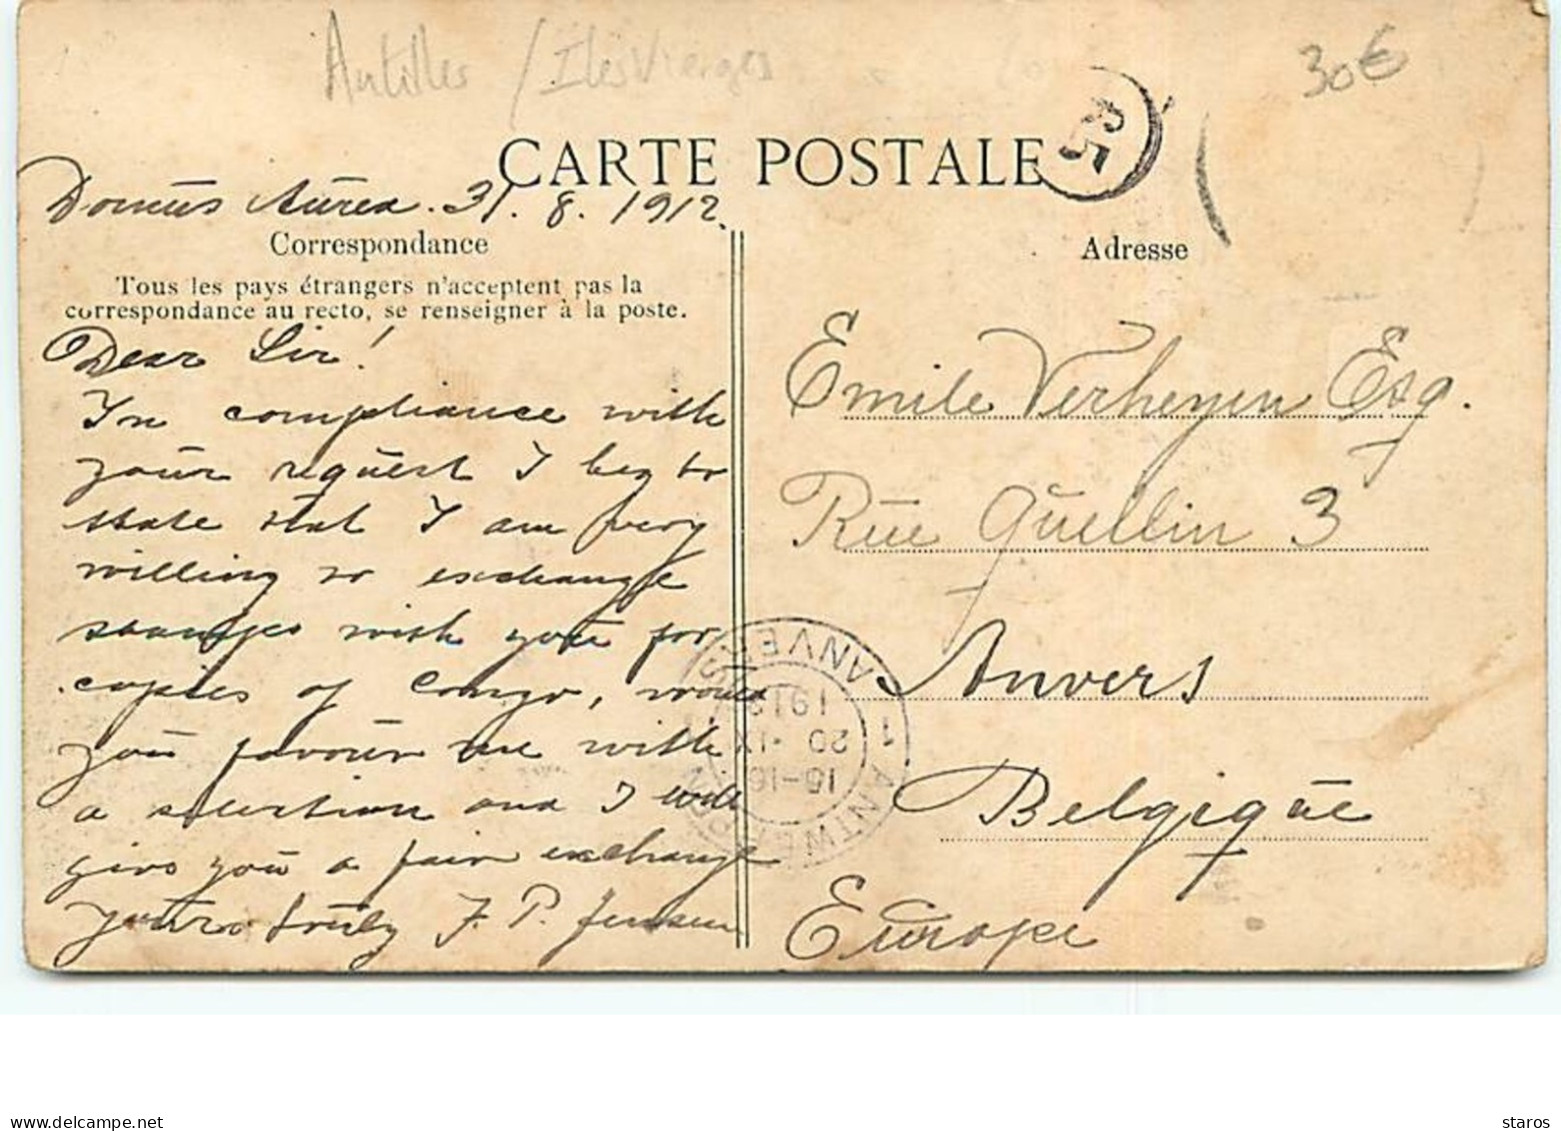 Antilles / Iles Vierges
30€
CARTE POSTALE
Domus Aurea. 31. 8. 1912.
Correspondance
Tous les pays étrangers n'acceptent pas la
correspondance au recto, se renseigner à la poste.
Dear Sir!
In compliance with
your request I beg to
state that I am very
willing to exchange
stamps with you for
copies of Congo, would
you favour me with
a selection and I will
give you a fair exchange
Yours truly J. P. Jensen
Adresse
Emile Verheyen Esq.
Rue Quellin 3
Anvers
Belgique
Europe
1 ANVERS
ANTWERPEN
15-16
20 · IX
1912
delcampe.net
staros